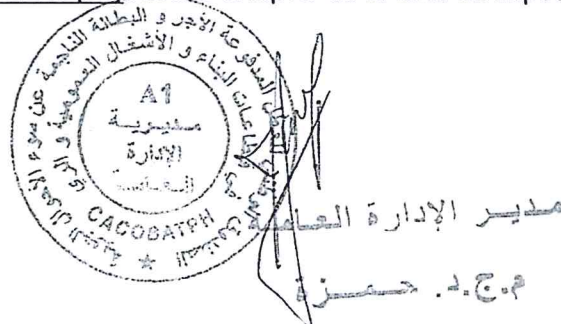 الصندوق الوطني للعطل المدفوعة الأجر و البطالة الناجمة عن سوء الأحوال الجوية
في قطاعات البناء و الأشغال العمومية و الري
CACOBATPH
A1
مديرية
الإدارة
العامة
مدير الإدارة العامة
م.ج.د. حمزة